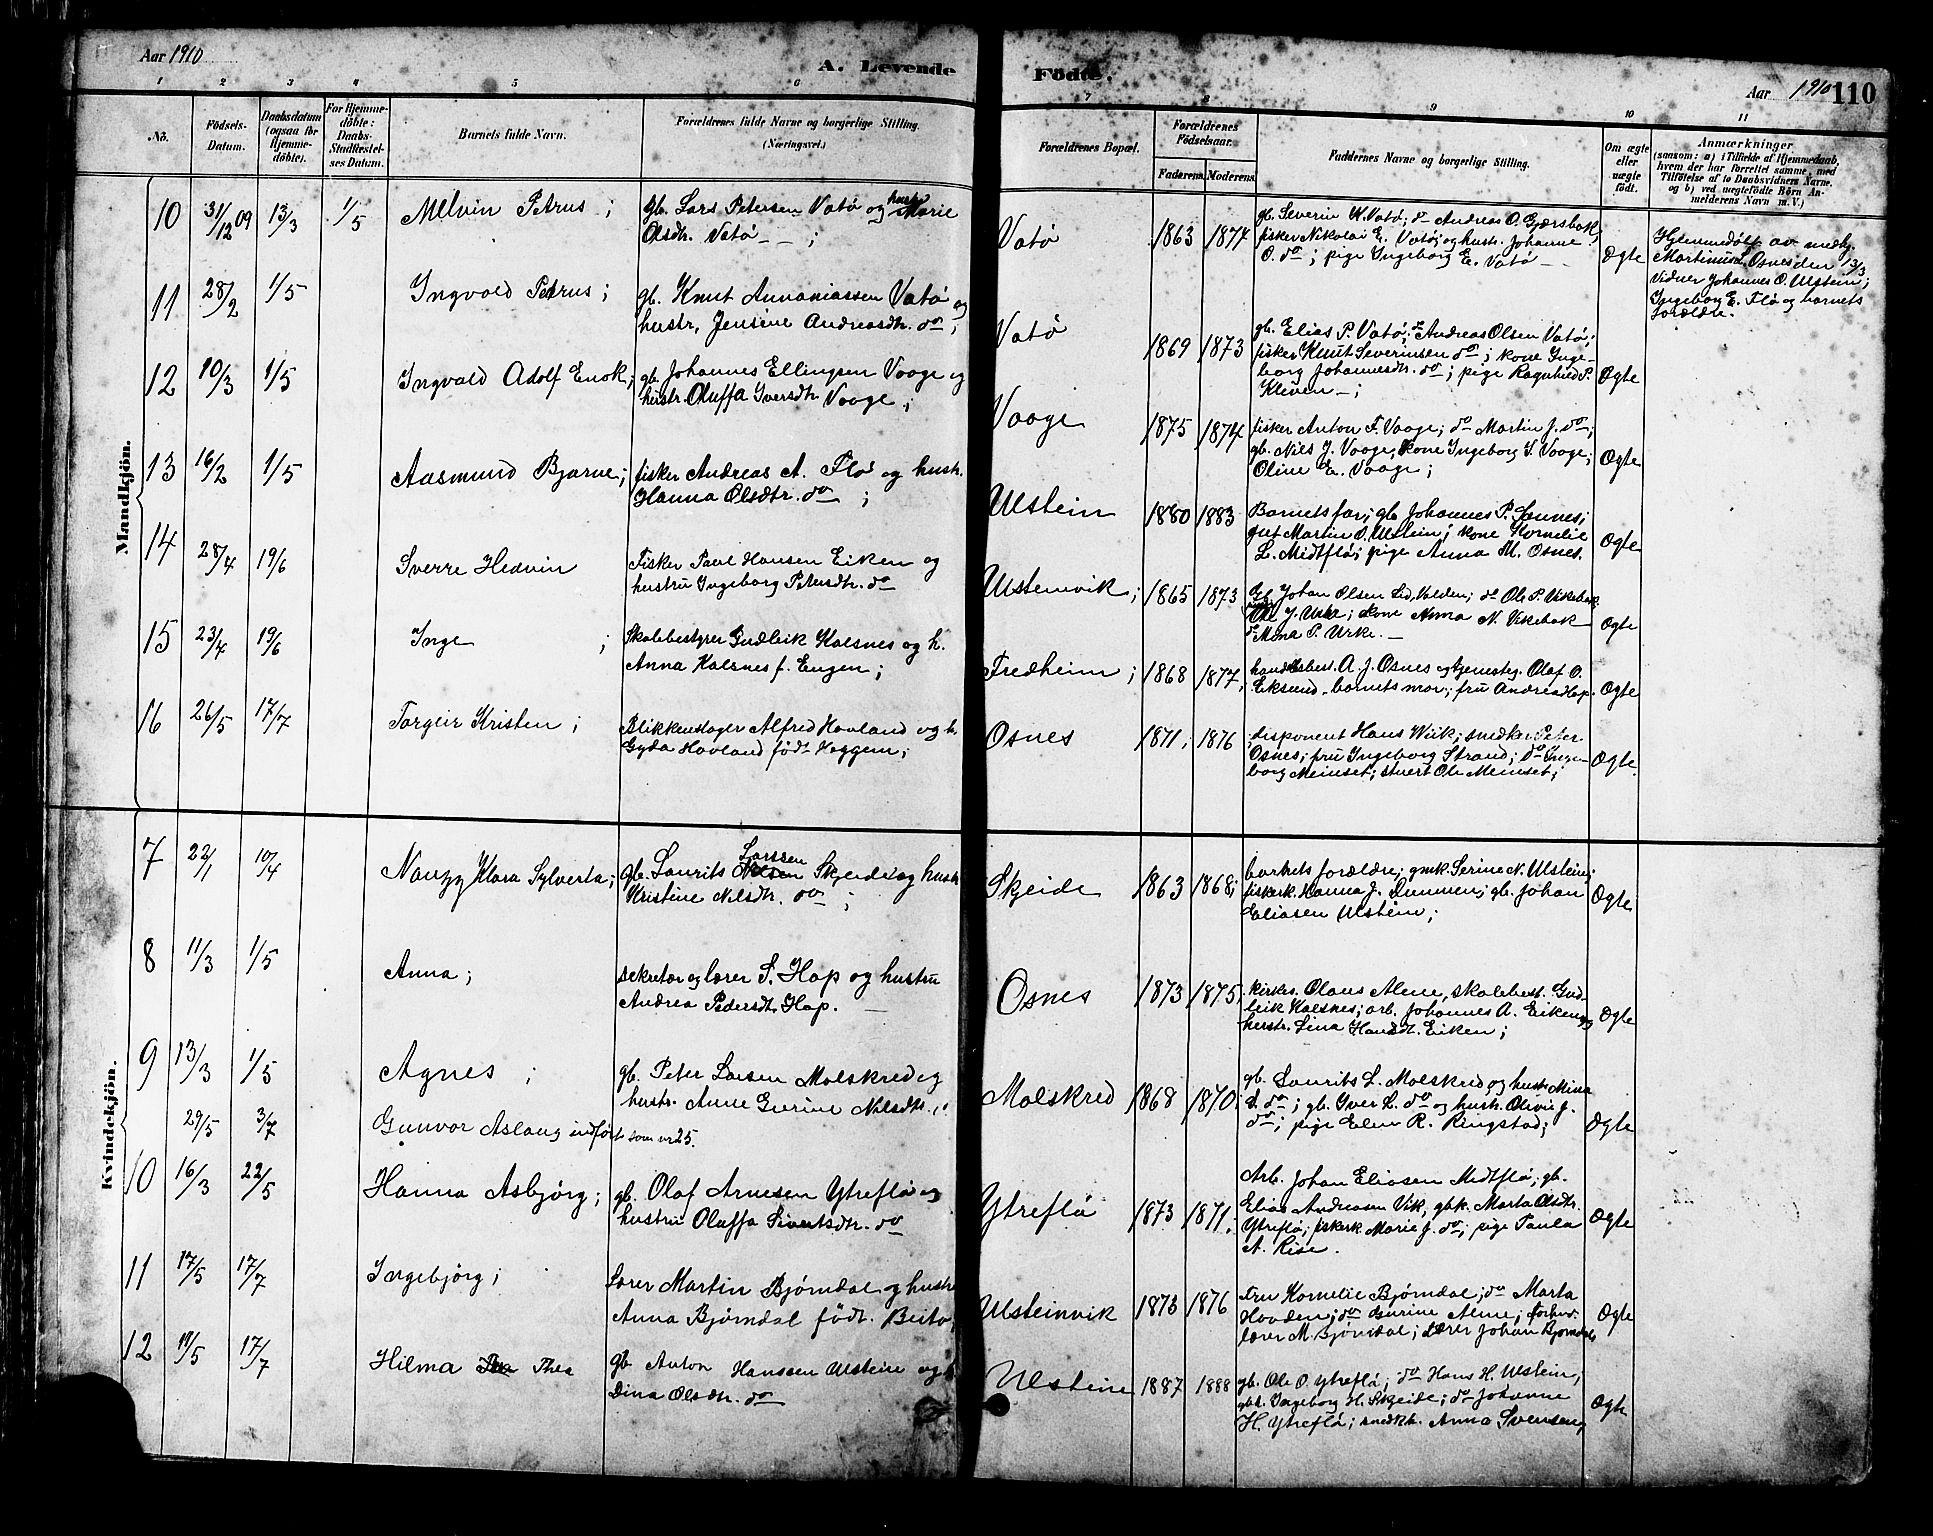 Aar 1910
A. Levende
Födte.
Aar 1910 110
1 2 3 4 5 6 7 8 9 10 11
No.
Födsels-
Datum.
Daabsdatum
(ogsaa for
Hjemme-
döbte).
For Hjemme-
döbte:
Daabs-
Stadfæstel-
ses Datum.
Barnets fulde Navn.
Forældrenes fulde Navne og borgerlige Stilling.
(Næringsvei.)
Forældrenes Bopæl.
Forældrenes
Fødselsaar.
Faderens Moderens
Faddernes Navne og borgerlige Stilling.
Om ægte
eller
uægte
födt.
Anmærkninger
(saasom: a) i Tilfælde af Hjemmedaab,
hvem der har forrettet samme, med
Tilføielse af to Daabsvidners Navne.
og b) ved uægtefödte Börn An-
melderens Navn m. V.)
Mandkjön.
10 31/12 09 13/3 1/5 Melvin Petrus;
gb. Lars Petersen Vatö og hustr. Marie
Olsdtr. Vatö — ;
Vatö 1863 1874
gb. Severin K. Vatö; do Andreas O. Gjærsbak;
fisker Nikolai E. Vatö; og hustr. Johanne
O. do; pige Ingeborg E. Vatö —
Ægte
Hjemmedøbt av medhj.
Martinus L. Osnes den 13/3
Vidner Johannes O. Ulstein;
Ingeborg E. Flö og barnets
forældre.
11 28/2 1/5 Ingvald Petrus;
gb. Knut Annaniassen Vatö og
hustr. Jensine Andreasdtr. do;
Vatö 1869 1873
gb. Elias P. Vatö; do Andreas Olsen Vatö;
fisker Knut Severinsen do; kone Inge-
borg Johannesdtr. do; pige Ragnhild P.
Kleven —;
Ægte
12 10/3 1/5 Ingvald Adolf Enok;
gb. Johannes Ellingsen Vaage og
hustr. Oluffa Iversdtr. Vaage;
Vaage 1875 1874
fisker Anton F. Vaage; do Martin J. do;
gb. Nils J. Vaage, kone Ingeborg S. Vaage;
Oline E. Vaage;
Ægte
13 16/2 1/5 Aasmund Bjarne;
fisker Andreas A. Flö og hustr.
Hanna Olsdtr. do;
Ulstein 1880 1883
Barnets far; gb. Johannes P. Sannes;
gut Martin O. Ulstein; kone Kornelie
L. Midtflö; pige Anna M. Osnes.
Ægte
14 28/4 19/6 Sverre Hedvin
Fisker Paul Hansen Eiken og
hustru Ingeborg Petersdtr. do
Ulsteinvik; 1865 1873
Gb. Johan Olsen Lid, Volden; do Ole P. Vikebak
Ole J. Urke; kone Anna N. Vikebak
do Mina P. Urke. —
Ægte
15 23/4 19/6 Inge ;
Skolebestyrer Gudleik Kalsnes og h.
Anna Kalsnes f. Engen;
Fredheim; 1868 1877,
handelsbest. A. J. Osnes og tjenesteg. Olaf O.
Eksund, barnets mor; fru Andrea Hop.
Ægte
16 26/5 17/7 Torgeir Kristen;
Blikkenslager Alfred Hovland og h.
Gyda Hovland födt Heggem;
Osnes 1871; 1876
disponent Hans Wiik; snedker Peter
Osnes; fru Ingeborg Strand; do Inge-
borg Meinset; stuert Ole Meinset;
Ægte.
Kvindekjön.
7 22/1 10/4 Nanzy Klara Sylverta;
gb. Laurits Larssen Skjeide og hustr.
Kristine Nilsdtr. do;
Skjeide 1863 1868;
barnets forældre; gmk. Serine N. Ulstein;
fiskerk. Hanna J. Dimmen; gb. Johan
Eliasen Ulstein;
Ægte
8 11/3 1/5 Anna;
Sekretær og lærer S. Hop og hustru
Andrea Pedersdtr. Hop. —
Osnes 1873 1875
kirkes. Olaus Alme, skolebest. Gud-
leik Kalsnes; arb. Johannes A. Eiken og
hustr. Lina Hansdt. Eiken;
Ægte
9 13/3 1/5 Agnes ;
gb. Peter Larsen Malskred og
hustr. Anne Gurine Nilsdtr.
Malskred 1868 1870
gb. Laurits L. Malskred og hustr. Mina
L. do; gb. Iver L. do og hustr. Olivie J.
do; pige Elen R. Ringstad;
Ægte
29/5 3/7 Gunvor Aslaug indført som nr 25.
10 16/3 22/5 Hanna Asbjörg;
gb. Olaf Arnesen Ytreflö og
hustru Oluffa Sivertsdtr. do
Ytreflö 1873 1871,
Arb. Johan Eliasen Midtflö; gb.
Elias Andreasen Vik, gbk. Marta Olsdtr.
Ytreflö; fiskerk. Marie J. do; pige Paula
A. Rise.
Ægte
11 17/5 17/7 Ingebjörg;
Lærer Martin Bjørndal og hustr.
Anna Bjørndal födt. Beito;
Ulsteinvik 1873 1876
Fru Kornelie Bjørndal; do Marta
Hovden; do Gurine Alme;
lærer M. Bjørndal; lærer Johan Bjørndal
Ægte
12 19/5 17/7 Hilma Thea
gb. Anton Hanssen Ulstein og h.
Dina Olsdtr. do
Ulstein 1887 1888
gb. Ole O. Ytreflö; do Hans H. Ulstein;
gbk. Ingeborg H. Skjeide; do Johanne
H. Ytreflö; snedkk. Anna Svensen;
Ægte